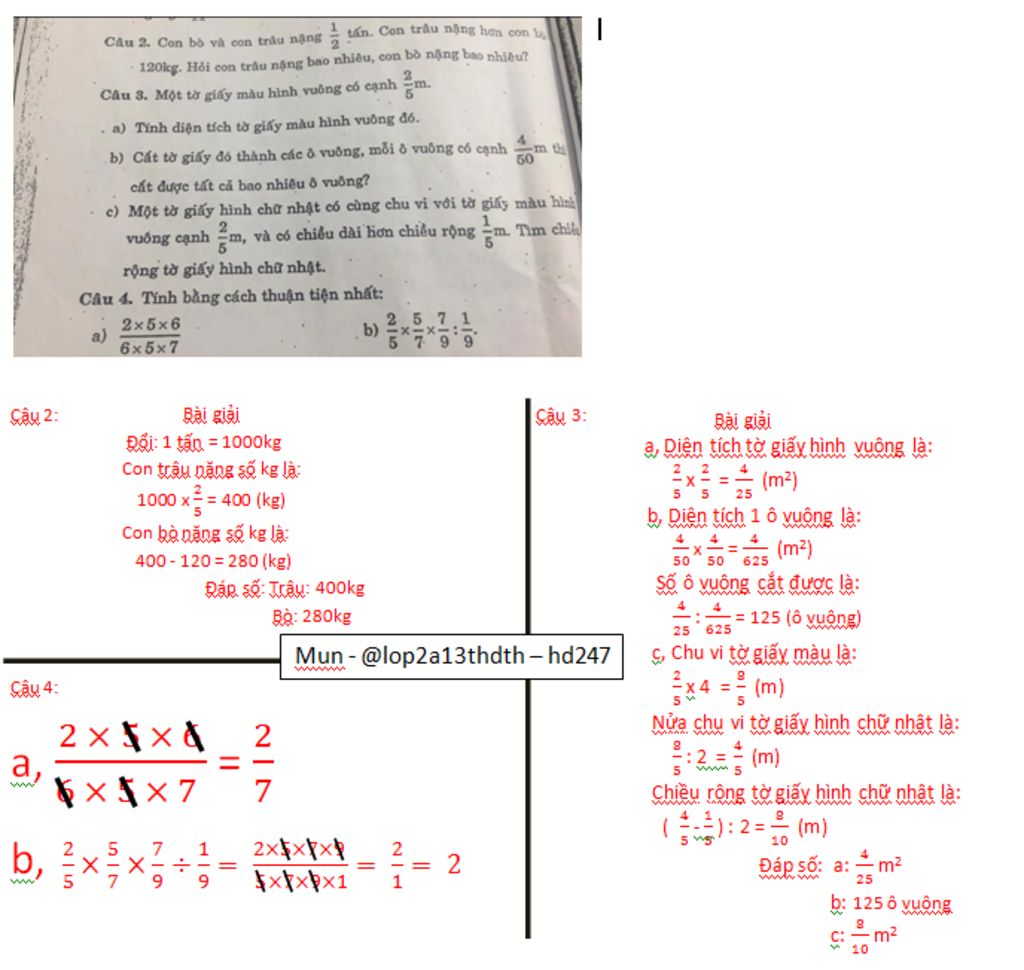 Câu 2. Con bò và con trâu nặng 1/2 tấn. Con trâu nặng hơn con
120kg. Hỏi con trâu nặng bao nhiêu, con bò nặng bao nhiêu?
Câu 3. Một tờ giấy màu hình vuông có cạnh 2/5 m.
a) Tính diện tích tờ giấy màu hình vuông đó.
b) Cắt tờ giấy đó thành các ô vuông, mỗi ô vuông có cạnh 4/50 m
cắt được tất cả bao nhiêu ô vuông?
c) Một tờ giấy hình chữ nhật có cùng chu vi với tờ giấy màu hình
vuông cạnh 2/5 m, và có chiều dài hơn chiều rộng 1/5 m. Tìm chiều
rộng tờ giấy hình chữ nhật.
Câu 4. Tính bằng cách thuận tiện nhất:
a) (2×5×6)/(6×5×7) b) 2/5 × 5/7 × 7/9 : 1/9.
Câu 2:
Bài giải
Đổi: 1 tấn = 1000kg
Con trâu nặng số kg là:
1000 x 2/5 = 400 (kg)
Con bò nặng số kg là:
400 - 120 = 280 (kg)
Đáp số: Trâu: 400kg
Bò: 280kg
Câu 3:
Bài giải
a, Diện tích tờ giấy hình vuông là:
2/5 x 2/5 = 4/25 (m²)
b, Diện tích 1 ô vuông là:
4/50 x 4/50 = 4/625 (m²)
Số ô vuông cắt được là:
4/25 : 4/625 = 125 (ô vuông)
c, Chu vi tờ giấy màu là:
2/5 x 4 = 8/5 (m)
Nửa chu vi tờ giấy hình chữ nhật là:
8/5 : 2 = 4/5 (m)
Chiều rộng tờ giấy hình chữ nhật là:
( 4/5 - 1/5 ) : 2 = 8/10 (m)
Đáp số: a: 4/25 m²
b: 125 ô vuông
c: 8/10 m²
Mun - @lop2a13thdth – hd247
Câu 4:
a, (2 × 5 × 6)/(6 × 5 × 7) = 2/7
b, 2/5 × 5/7 × 7/9 ÷ 1/9 = (2×5×7×9)/(5×7×9×1) = 2/1 = 2